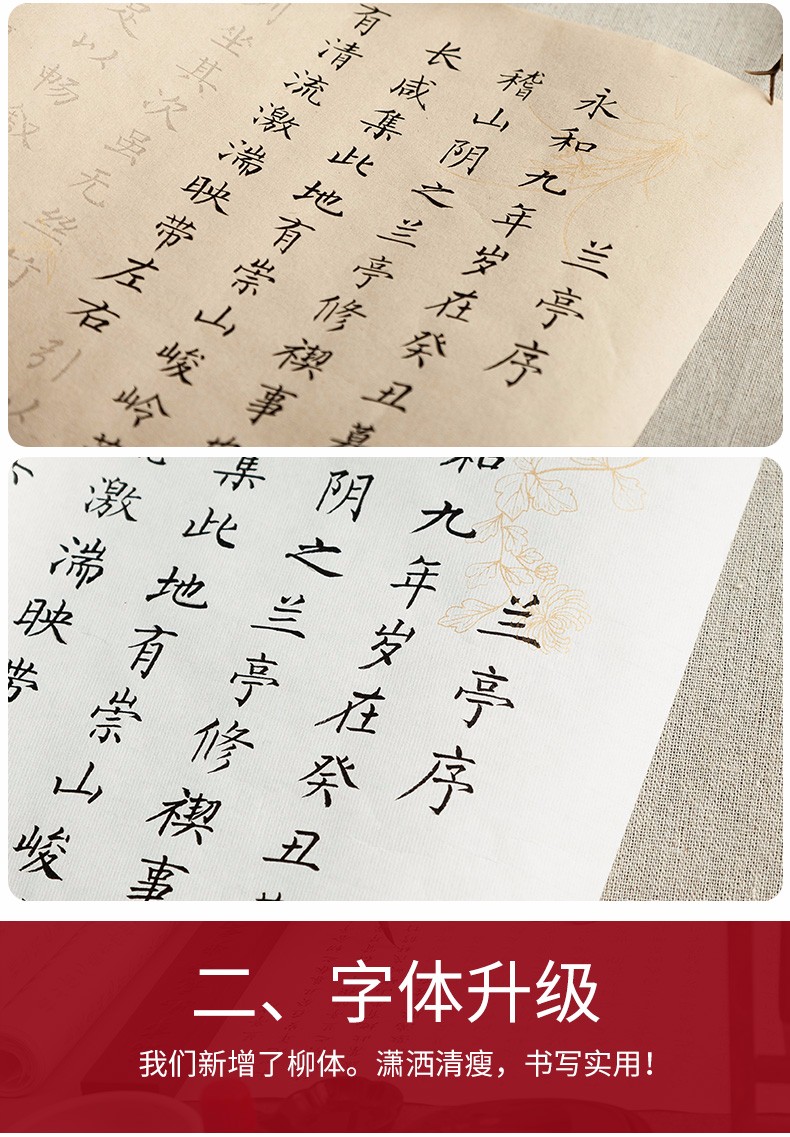 兰亭序
永和九年岁在癸丑暮
稽山阴之兰亭修禊事
长咸集此地有崇山峻岭
有清流激湍映带左右引以
坐其次虽无丝竹
足以畅叙
兰亭序
和九年岁在癸丑
阴之兰亭修禊事
集此地有崇山峻
激湍映带
二、字体升级
我们新增了柳体。潇洒清瘦，书写实用！